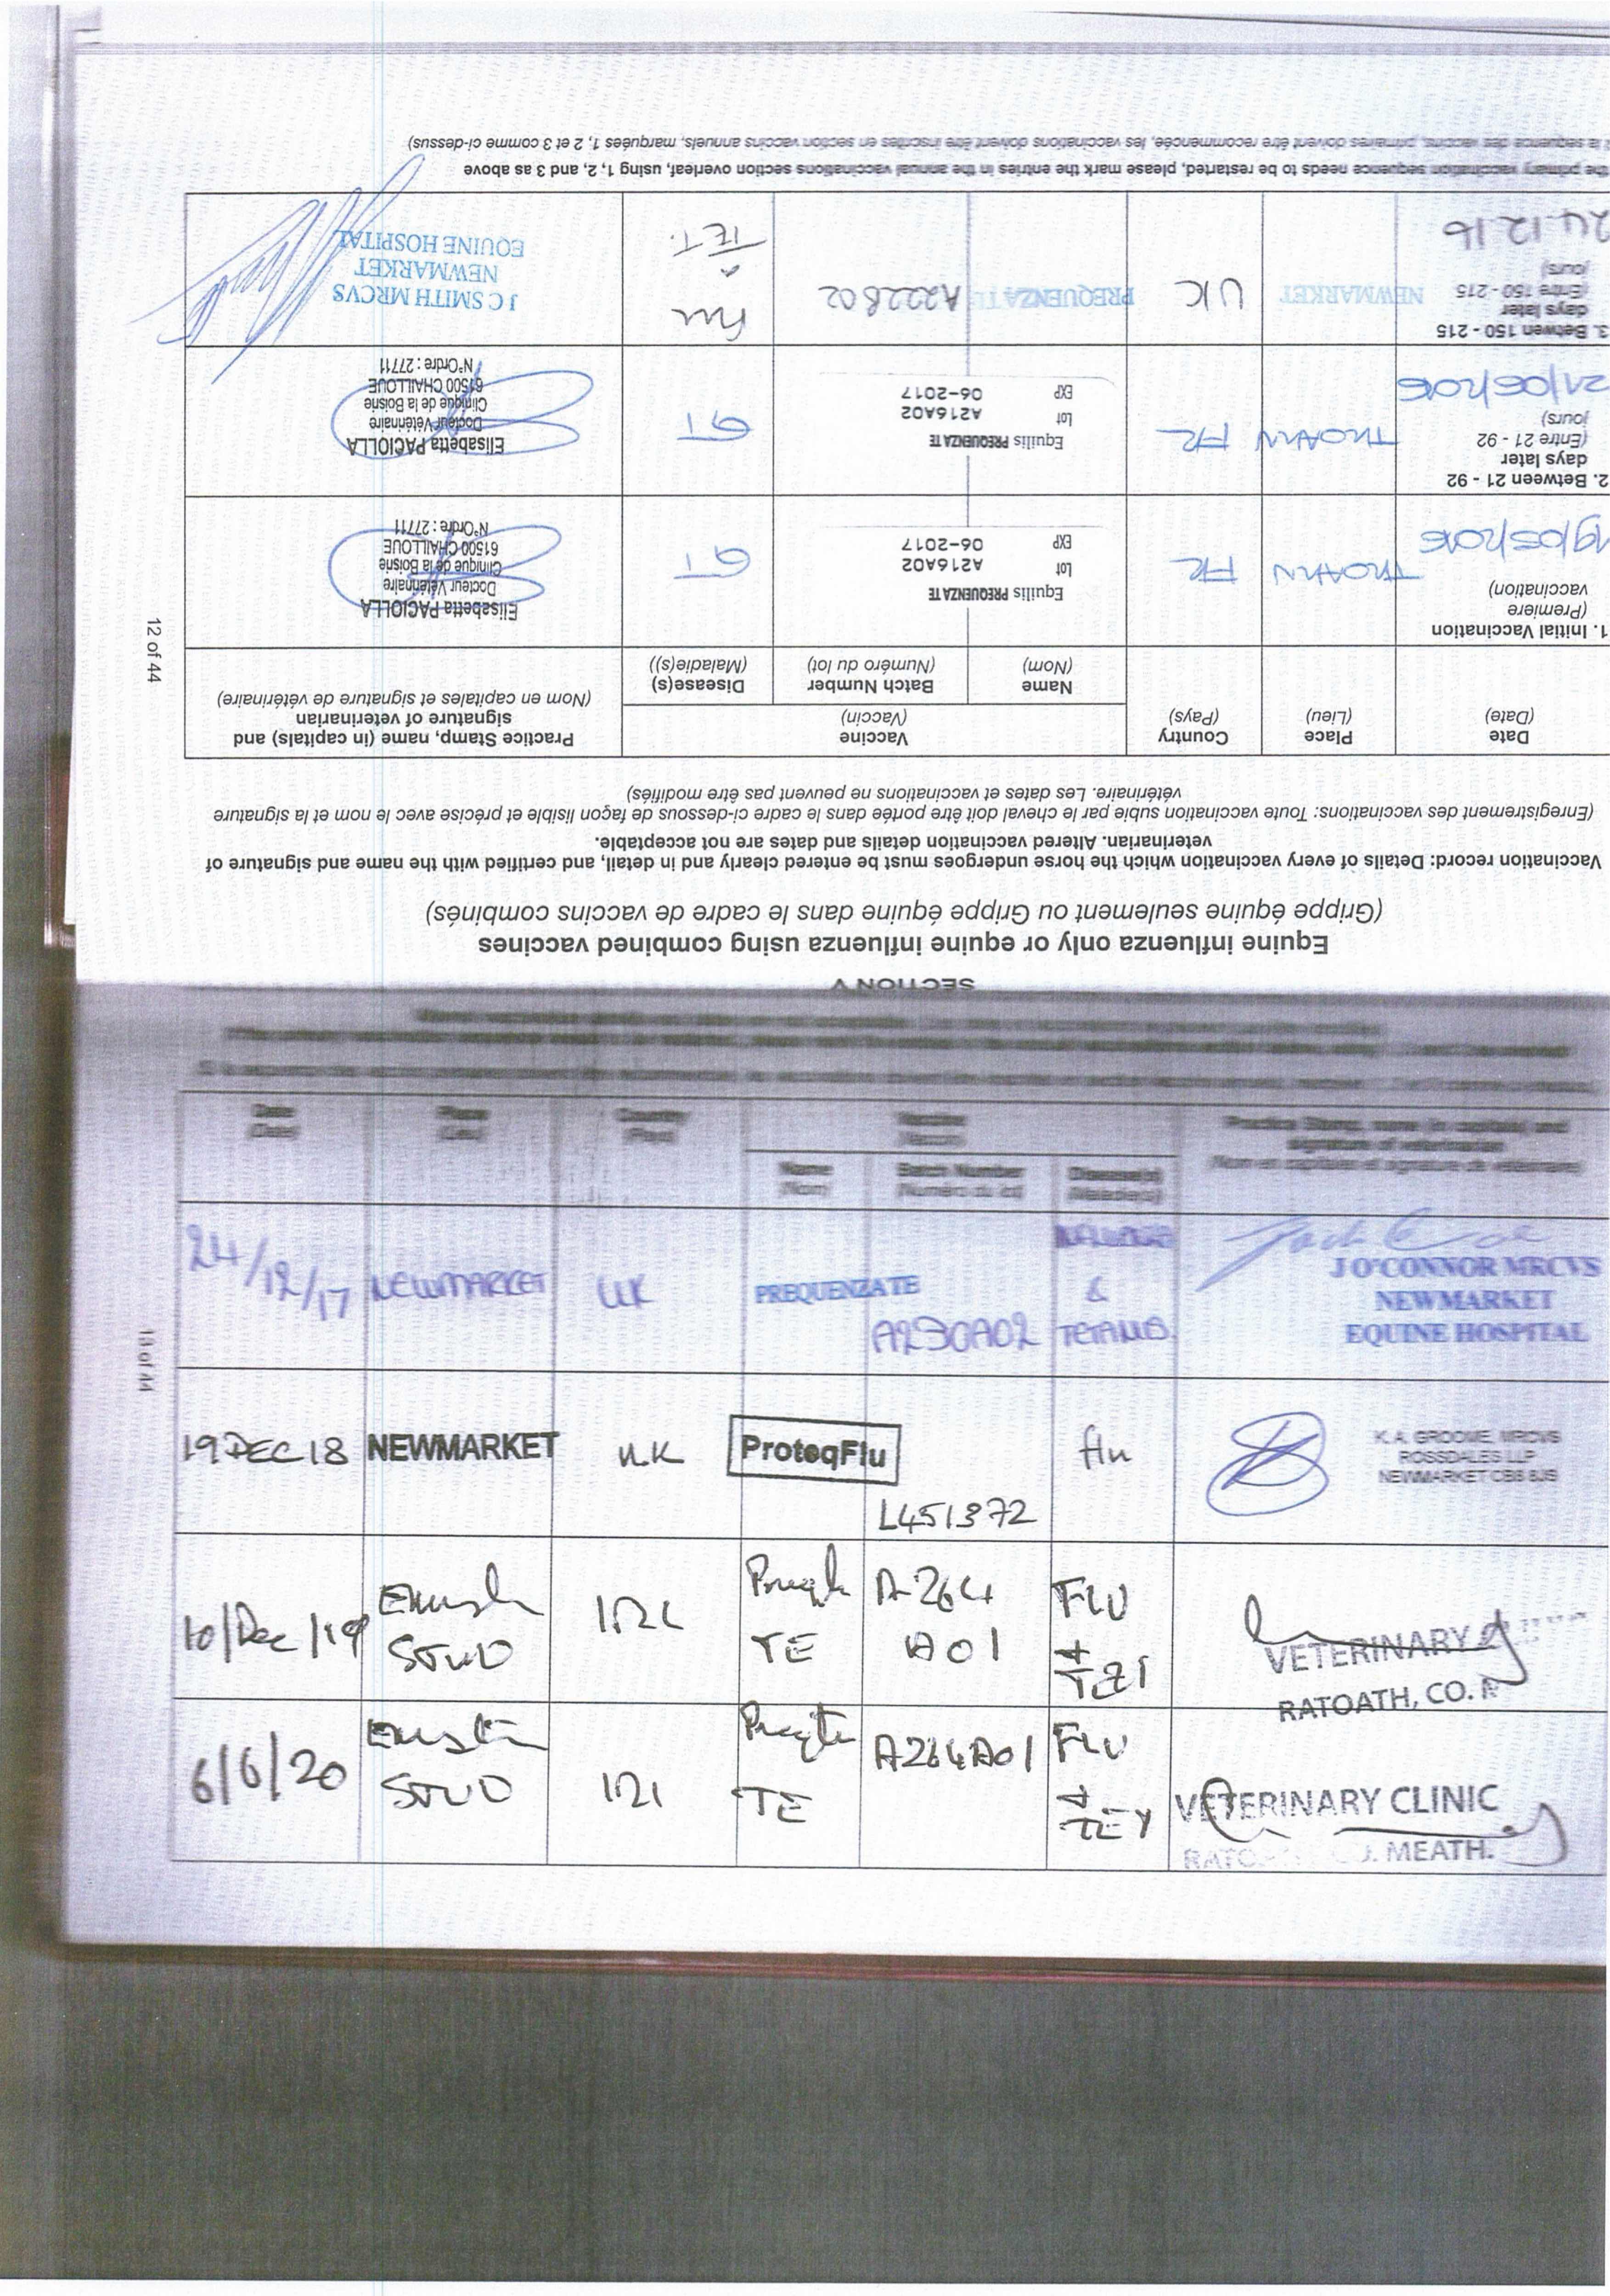 SECTION V
Equine influenza only or equine influenza using combined vaccines
(Grippe équine seulement ou Grippe équine dans le cadre de vaccins combinés)
Vaccination record: Details of every vaccination which the horse undergoes must be entered clearly and in detail, and certified with the name and signature of
veterinarian. Altered vaccination details and dates are not acceptable.
(Enregistrement des vaccinations: Toute vaccination subie par le cheval doit être portée dans le cadre ci-dessous de façon lisible et précise avec le nom et la signature
vétérinaire. Les dates et vaccinations ne peuvent pas être modifiés)
Date
(Date)
Place
(Lieu)
Country
(Pays)
Vaccine
(Vaccin)
Name
(Nom)
Batch Number
(Numéro du lot)
Disease(s)
(Maladie(s))
Practice Stamp, name (in capitals) and
signature of veterinarian
(Nom en capitales et signature de vétérinaire)
1. Initial Vaccination
(Première
vaccination)
19/05/2016
TROARN
FR
Equilis PREQUENZA TE
Lot A216A02
EXP 06-2017
GT
Elisabetta PACIOLLA
Docteur Vétérinaire
Clinique de la Boisne
61500 CHAILLOUE
N°Ordre : 27711
2. Between 21 - 92
days later
(Entre 21 - 92
jours)
21/06/2016
TROARN
FR
Equilis PREQUENZA TE
Lot A216A02
EXP 06-2017
GT
Elisabetta PACIOLLA
Docteur Vétérinaire
Clinique de la Boisne
61500 CHAILLOUE
N°Ordre : 27711
3. Betwen 150 - 215
days later
(Entre 150 - 215
jours)
24.12.16
NEWMARKET
UK
PREQUENZA TE
A222B02
Flu
TET.
J C SMITH MRCVS
NEWMARKET
EQUINE HOSPITAL
the primary vaccination sequence needs to be restarted, please mark the entries in the annual vaccinations section overleaf, using 1, 2, and 3 as above
la sequence des vaccins, primaires doivent être recommencée, les vaccinations doivent être inscrites en section vaccins annuels, marquées 1, 2 et 3 comme ci-dessus)
12 of 44
Date
(Date)
Place
(Lieu)
Country
(Pays)
Vaccine
(Vaccin)
Name
(Nom)
Batch Number
(Numéro du lot)
Disease(s)
(Maladie(s))
Practice Stamp, name (in capitals) and
signature of veterinarian
(Nom en capitales et signature de vétérinaire)
24/12/17
NEWMARKET
UK
PREQUENZA TE
A230A02
&
TETANUS.
J O'CONNOR MRCVS
NEWMARKET
EQUINE HOSPITAL
19 DEC 18
NEWMARKET
UK
ProteqFlu
L451372
flu
K. A. GROOME, MRCVS
ROSSDALES LLP
NEWMARKET CB8 8JS
10/Dec/19
STUD
IRL
TE
A264
A01
FLU
+
TET
VETERINARY
RATOATH, CO.
6/6/20
STUD
IRL
TE
A264A01
FLU
+
TET
VETERINARY CLINIC
MEATH.
13 of 44